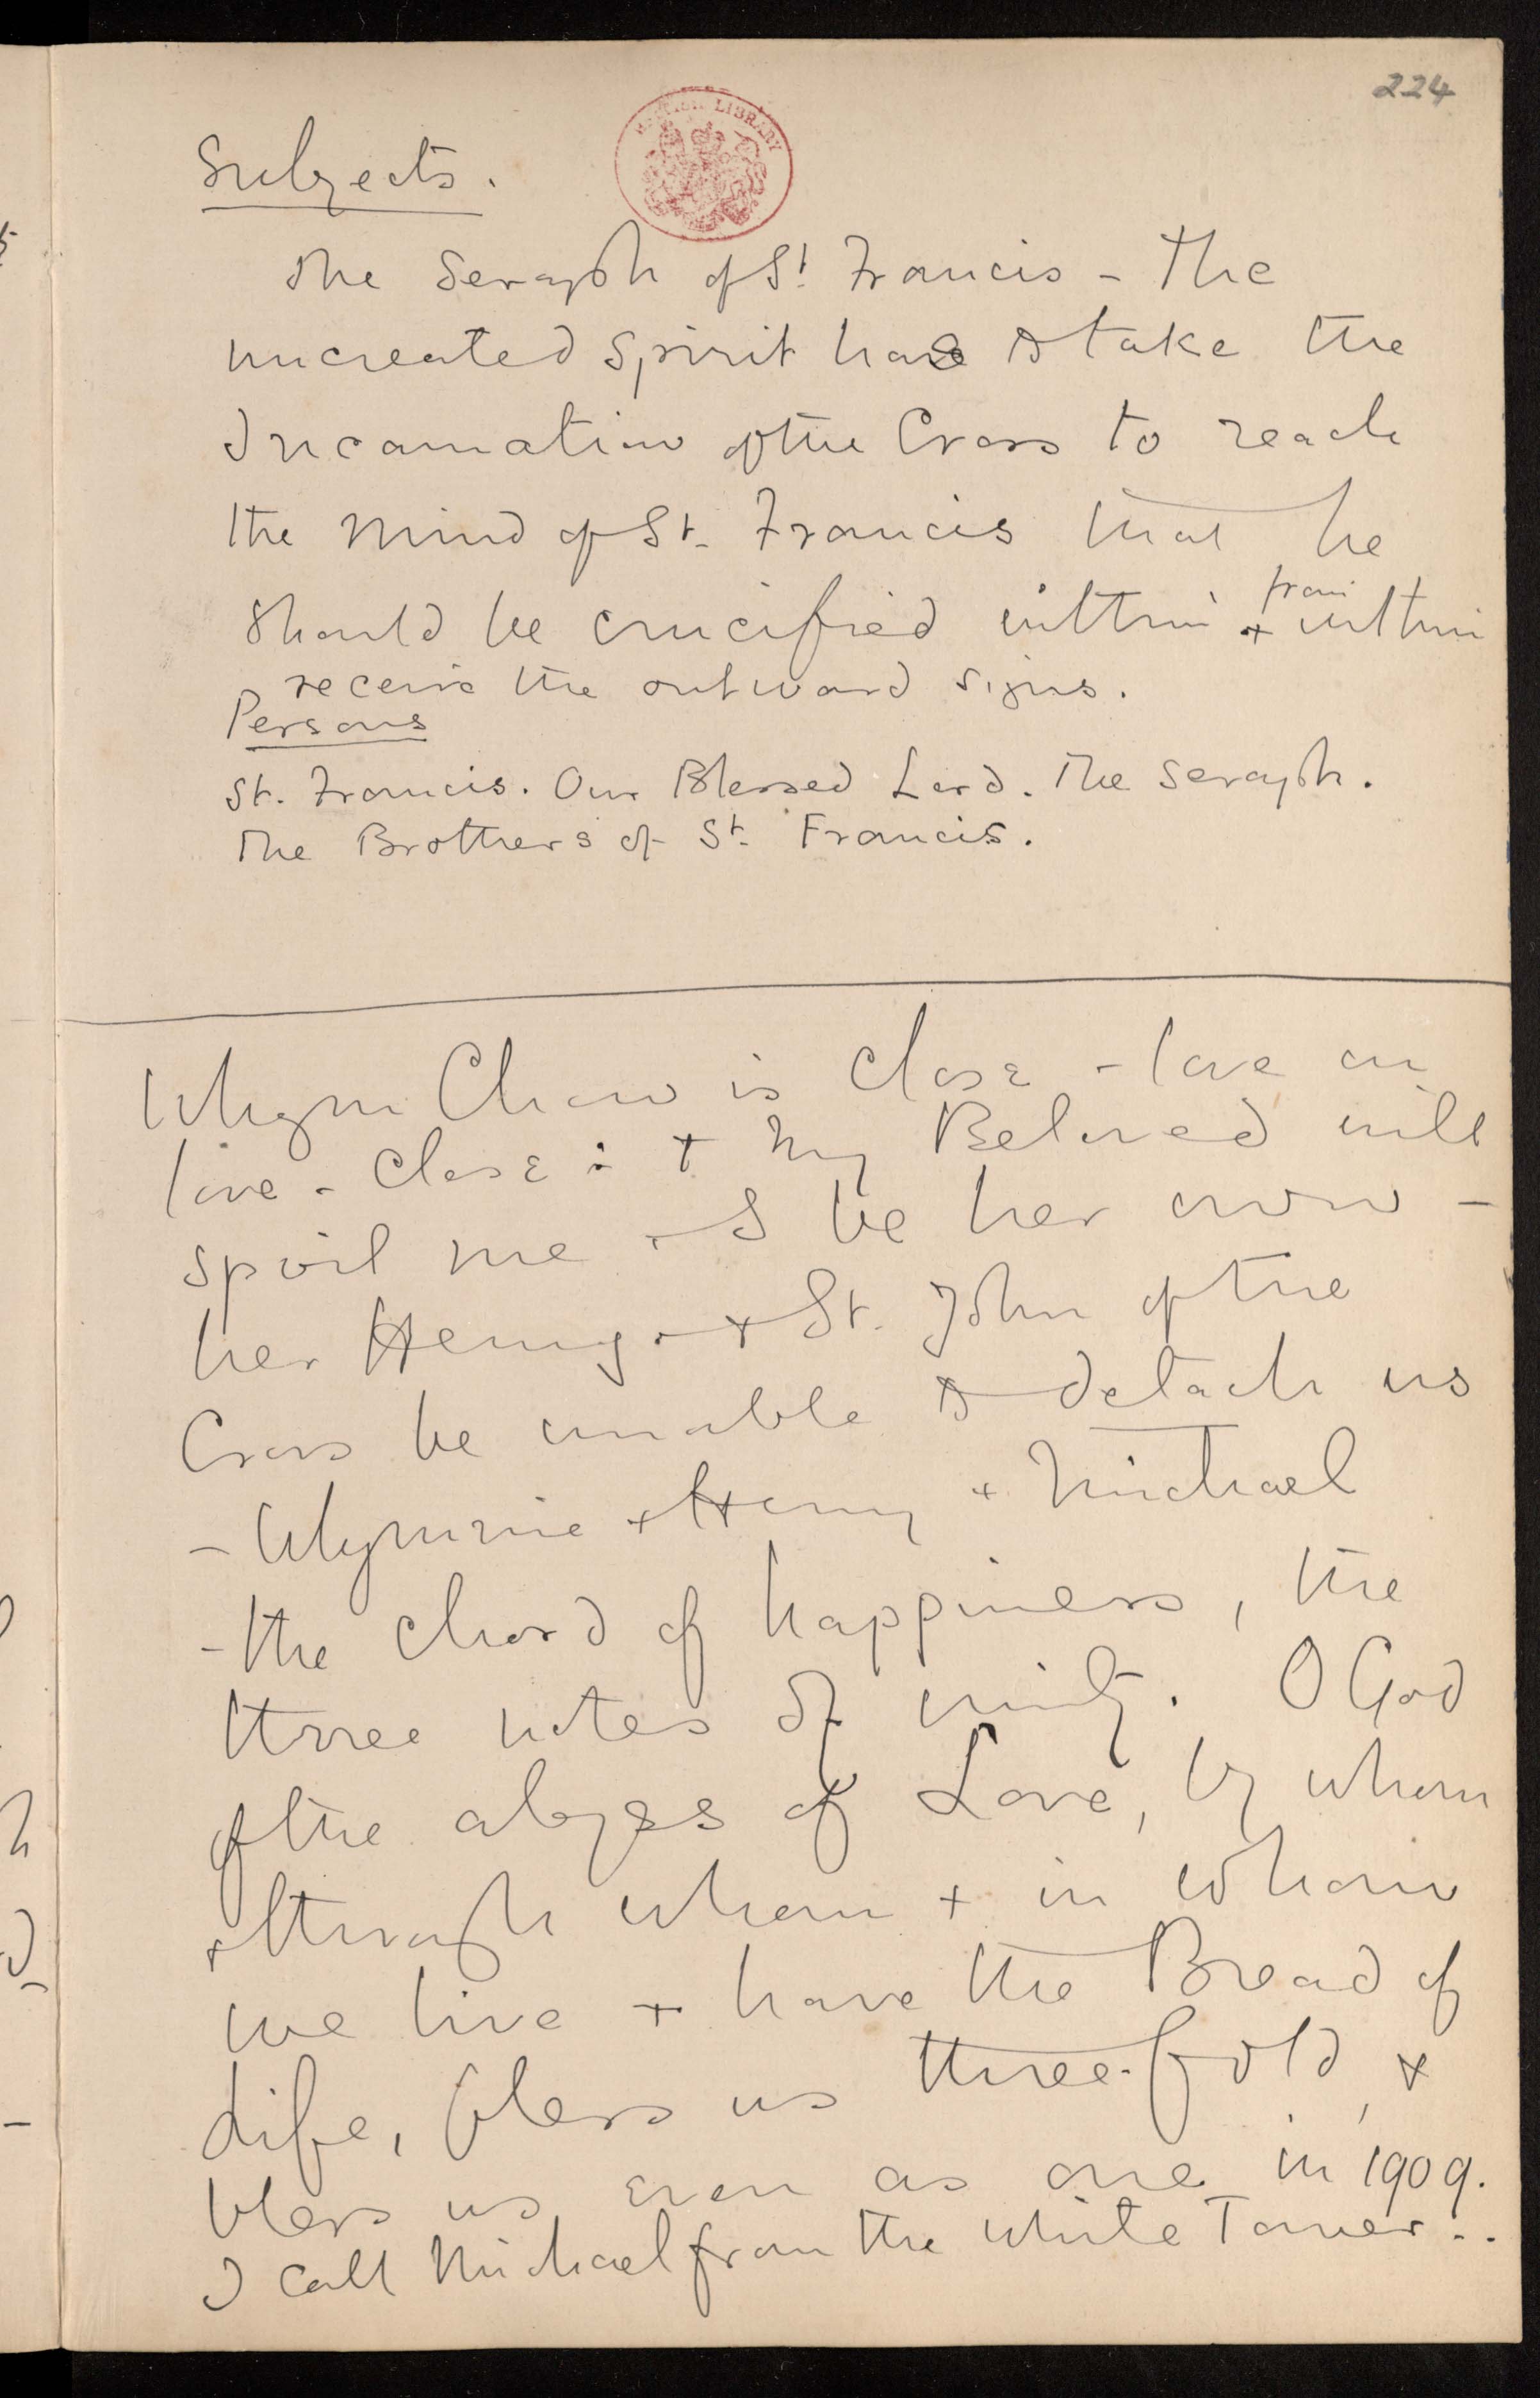 224
BRITISH LIBRARY
Subjects.
The Seraph of St. Francis – The
uncreated Spirit has to take the
Incarnation of the Cross to reach
the Mind of St. Francis that he
should be crucified within + from within
receive the outward signs.
Persons
St. Francis. Our Blessed Lord. The Seraph.
The Brothers of St. Francis.
Whym Chow is close – love on
love – close: + my Beloved will
spoil me – I be her own –
her Henny. – + St. John of the
Cross be unable to detach us
– Whymmie + Henny + Michael
– the chord of happiness, the
three notes of unity. O God
of the abyss of Love, by whom
+ through whom + in whom
we live + have the Bread of
Life, bless us three-fold, +
bless us even as one in 1909.
I call Michael from the White Tower..